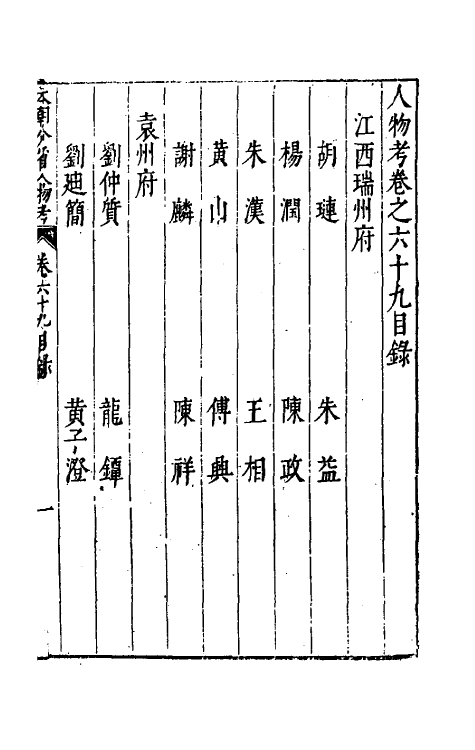 人物考卷之六十九目錄
江西瑞州府
胡璉 朱益
楊潤 陳政
朱漢 王相
黃山 傅興
謝麟 陳祥
袁州府
劉仲質 龍鐔
劉廸簡 黃子澄
本朝分省人物考 卷六十九目錄 一